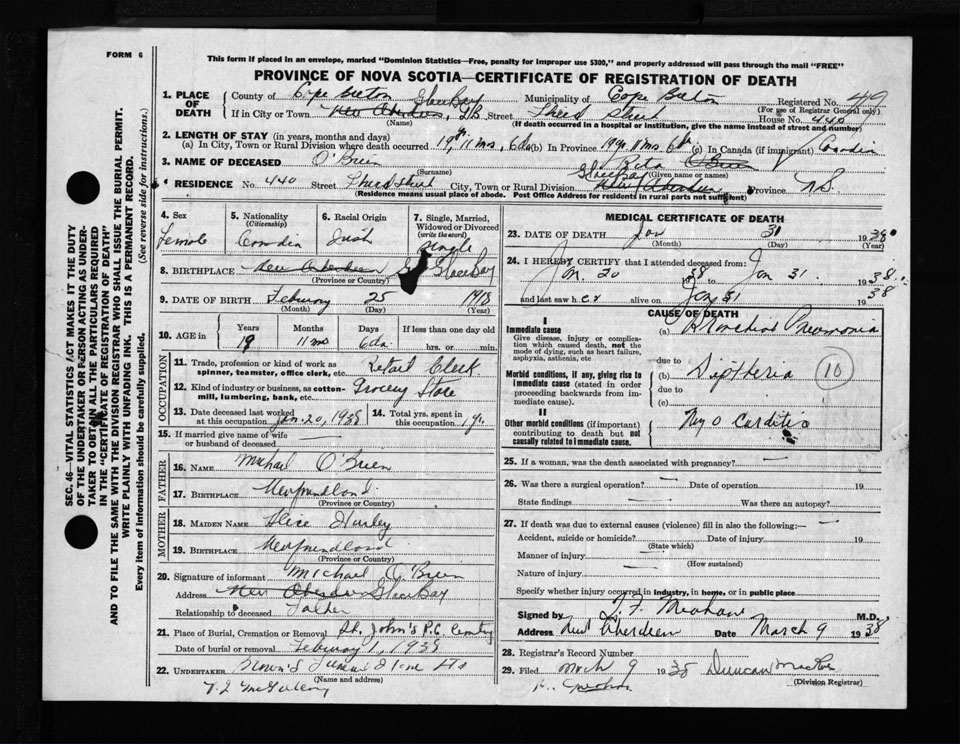 FORM 6
This form if placed in an envelope, marked "Dominion Statistics—Free, penalty for improper use $300," and properly addressed will pass through the mail "FREE"
PROVINCE OF NOVA SCOTIA—CERTIFICATE OF REGISTRATION OF DEATH
SEC. 46—VITAL STATISTICS ACT MAKES IT THE DUTY
OF THE UNDERTAKER OR PERSON ACTING AS UNDER-
TAKER TO OBTAIN ALL THE PARTICULARS REQUIRED
IN THE "CERTIFICATE OF REGISTRATION OF DEATH"
AND TO FILE THE SAME WITH THE DIVISION REGISTRAR WHO SHALL ISSUE THE BURIAL PERMIT.
WRITE PLAINLY WITH UNFADING INK. THIS IS A PERMANENT RECORD.
Every item of information should be carefully supplied. (See reverse side for instructions.)
1. PLACE OF DEATH County of Cape Breton Municipality of Cape Breton Registered No. 49
(For use of Registrar General only)
If in City or Town New Aberdeen, Glace Bay Street House No. 440
(Name) (If death occurred in a hospital or institution, give the name instead of street and number)
2. LENGTH OF STAY (in years, months and days)
(a) In City, Town or Rural Division where death occurred 19 yr. 11 ms. 6 da (b) In Province 19 yr. 11 ms. 6 da (c) In Canada (if immigrant)
3. NAME OF DECEASED O'Brien Rita O'Brien
(Surname) (Given name or names)
RESIDENCE No. 440 Street City, Town or Rural Division Glace Bay New Aberdeen Province N.S.
(Residence means usual place of abode. Post Office Address for residents in rural parts not sufficient)
4. Sex Female
5. Nationality (Citizenship) Canadian
6. Racial Origin Irish
7. Single, Married, Widowed or Divorced (write the word) Single
8. BIRTHPLACE New Aberdeen Glace Bay
(Province or Country)
9. DATE OF BIRTH February 25 1918
(Month) (Day) (Year)
10. AGE in Years 19 Months 11 ms Days 6 da. If less than one day hrs. or min.
OCCUPATION
11. Trade, profession or kind of work as spinner, teamster, office clerk, etc. Retail Clerk
12. Kind of industry or business, as cotton-mill, lumbering, bank, etc. Grocery Store
13. Date deceased last worked at this occupation Jan. 20, 1938 14. Total yrs. spent in this occupation 1 yr.
15. If married give name of wife or husband of deceased —
FATHER
16. NAME Michael O'Brien
17. BIRTHPLACE Newfoundland
(Province or Country)
MOTHER
18. MAIDEN NAME Alice Hurley
19. BIRTHPLACE Newfoundland
(Province or Country)
20. Signature of informant Michael O'Brien
Address New Aberdeen Glace Bay
Relationship to deceased Father
21. Place of Burial, Cremation or Removal St. John's R.C. Cemetry
Date of burial or removal February 1, 1938
22. UNDERTAKER Brown's Funeral Home Ltd
(Name and address)
MEDICAL CERTIFICATE OF DEATH
23. DATE OF DEATH Jan 31 1938
(Month) (Day) (Year)
24. I HEREBY CERTIFY that I attended deceased from:
Jan. 20 38 to Jan 31. 1938
and last saw h er alive on Jan 31 1938
CAUSE OF DEATH
I
Immediate cause
Give disease, injury or complication which caused death, not the mode of dying, such as heart failure, asphyxia, asthenia, etc
(a) Bronchial Pneumonia
due to
Morbid conditions, if any, giving rise to immediate cause (stated in order proceeding backwards from immediate cause).
(b) Diptheria 10
due to
(c)
II
Other morbid conditions (if important) contributing to death but not causally related to immediate cause.
Myocarditis
25. If a woman, was the death associated with pregnancy? —
26. Was there a surgical operation? — Date of operation 19
State findings Was there an autopsy?
27. If death was due to external causes (violence) fill in also the following:— —
Accident, suicide or homicide? Date of injury 19
(State which)
Manner of injury —
(How sustained)
Nature of injury —
Specify whether injury occurred in industry, in home, or in public place
Signed by M.D.
Address New Aberdeen Date March 9 1938
28. Registrar's Record Number
29. Filed March 9 1938 Duncan
(Division Registrar)